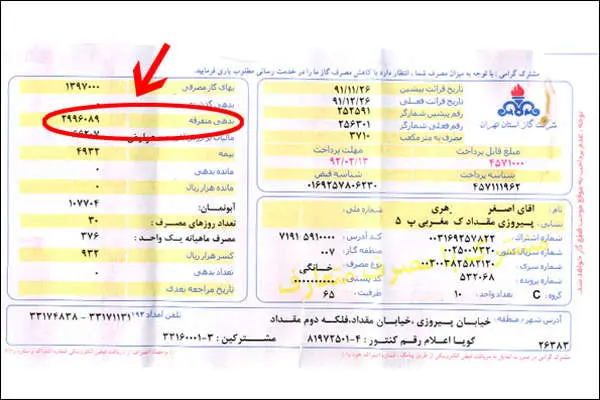 مشترک گرامی! با توجه به میزان مصرف شما، انتظار دارد با کاهش مصرف گاز ما را در خدمت رسانی مطلوب یاری فرمایید.
شرکت گاز استان تهران
تاریخ قرائت پیشین ۹۱/۱۱/۲۶
تاریخ قرائت فعلی ۹۱/۱۲/۲۶
رقم پیشین شمارگر ۲۵۲۵۹۱
رقم فعلی شمارگر ۲۵۶۳۰۱
مصرف به متر مکعب ۳۷۱۰
مبلغ قابل پرداخت ۴۵۷۱۰۰۰
مهلت پرداخت ۹۲/۰۲/۱۳
شناسه پرداخت ۴۵۷۱۱۱۹۶۲
شناسه قبض ۰۱۶۹۲۵۷۸۰۶۲۳۰
بهای گاز مصرفی ۱۳۹۷۰۰۰
بدهی متفرقه ۲۹۹۶۰۸۹
بیمه ۴۹۳۲
مانده بدهی ۰
مانده هزار ریال ۰
آبونمان: ۱۰۷۷۰۴
تعداد روزهای مصرف: ۳۰
مصرف ماهیانه یک واحد: ۳۷۶
کسر هزار ریال ۹۳۲
تعداد بدهی ۰
تاریخ مراجعه بعدی
نام: آقای اصغر هری
نشانی: پیروزی مقداد ک مغربی پ ۵
شماره اشتراک: ۰۰۳۱۶۹۲۵۷۸۲۲
کد آدرس: ۷۱۹۱ ۵۹۱۰۰۰۰
شماره سریال کنتور: ۰۰۲۵۰۰۷۲۳۰
منطقه گاز: ۰۰۷
شماره سری: ۰۰۳۰۰۳۸۲۵۸۲۱۳۰
نوع مصرف: خانگی
شماره پرونده: ۵۳۲۰۶۸
کد پستی: ۰۰۰۰۰۰۰۰۰۰
گروه: C
تعداد واحد: ۱۰
ظرفیت: ۶۵
آدرس شهر، منطقه: خیابان پیروزی، خیابان مقداد، فلکه دوم مقداد
تلفن امداد ۱۹۴: ۳۳۱۷۱۱۳۱ - ۳۳۱۷۴۸۳۸
۲۶۳۸۳
گویا اعلام رقم کنتور: ۴-۸۱۹۷۲۵۰۱
مشترکین: ۳-۳۳۱۶۰۰۰۱